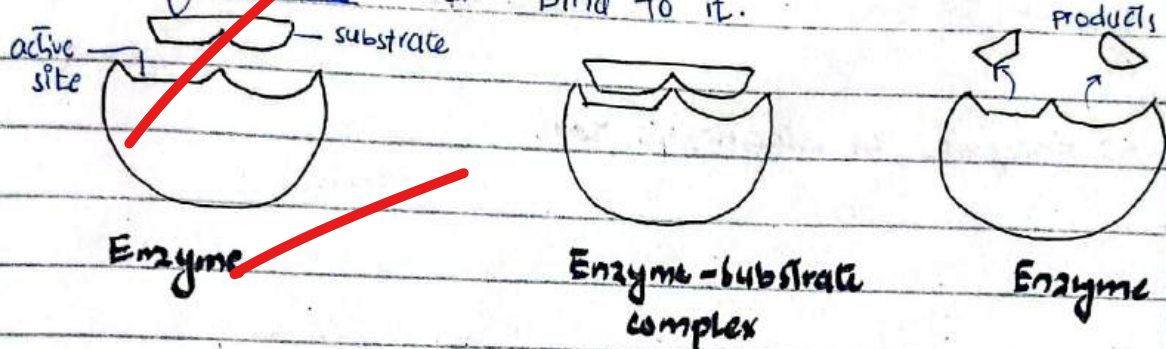 bind to it.
products
active
site
substrate
Enzyme
Enzyme-substrate
complex
Enzyme